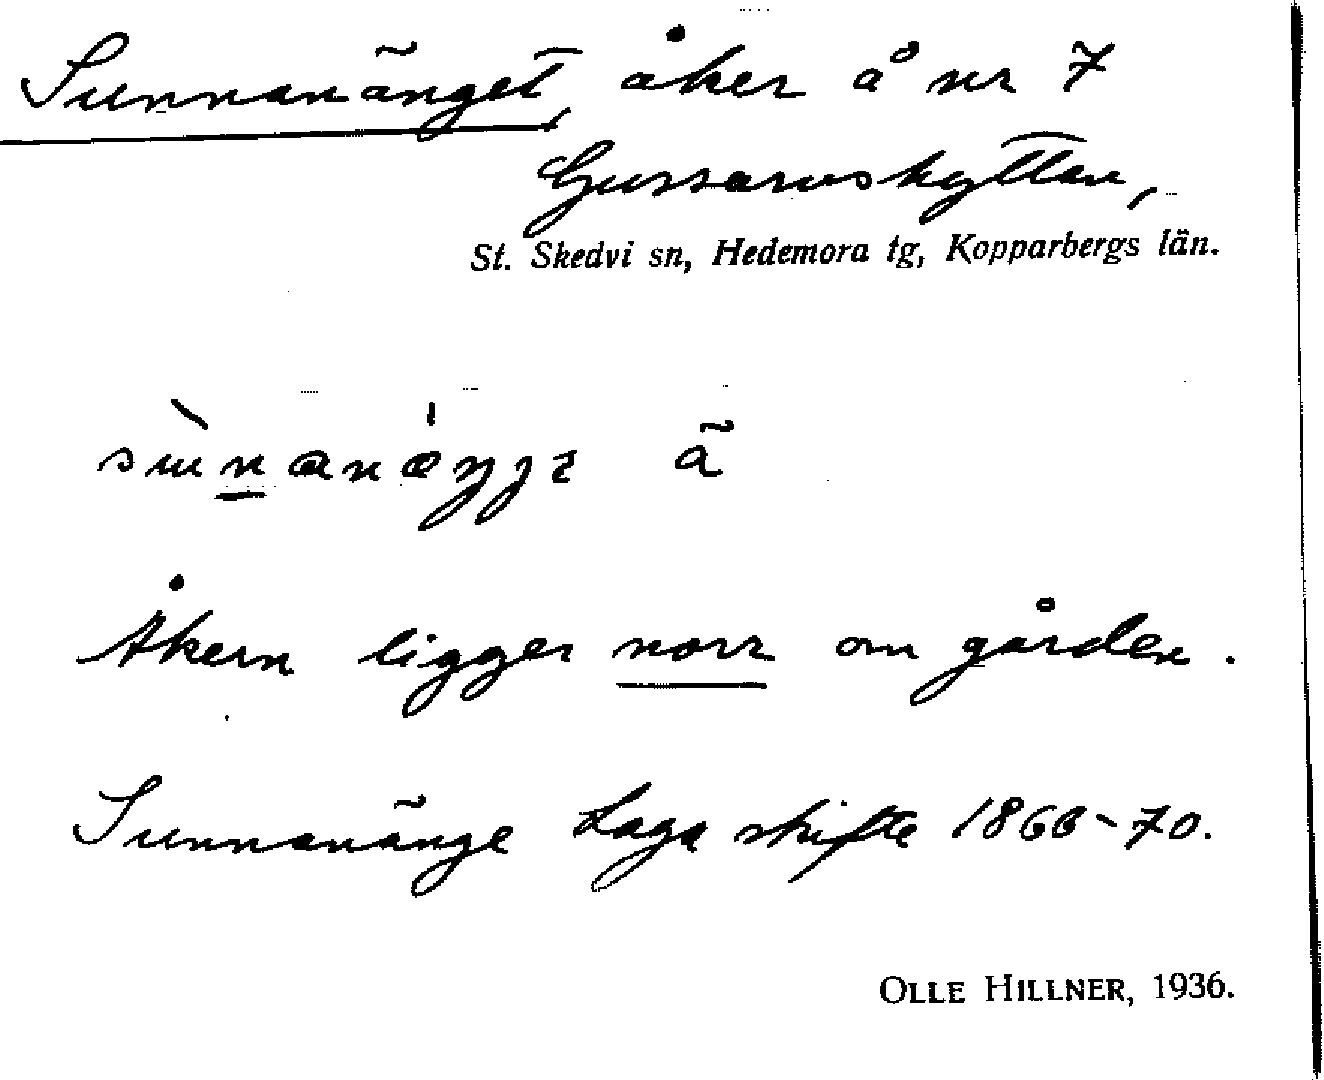 Sunnanänget, åker å nr 7
Gussarvshyttan,
St. Skedvi sn, Hedemora tg, Kopparbergs län.
ã
Åkern ligger norr om gården.
Sunnanänge Laga skifte 1866-70.
OLLE HILLNER, 1936.